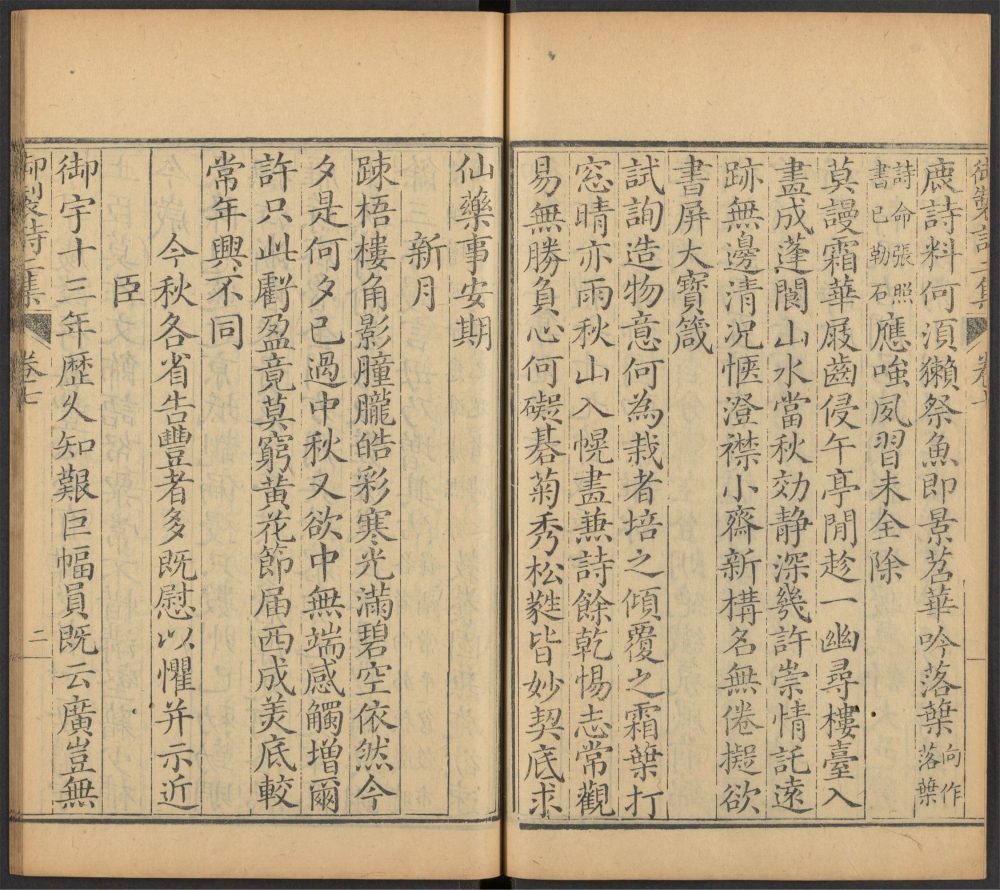 御製詩二集 卷七 一
鹿詩料何湏獺祭魚即景苕華吟落葉向作落葉
詩命張照書已勒石應嗤夙習未全除
莫謾霜華屐齒侵午亭閒趁一幽尋樓臺入
畫成蓬閬山水當秋効静深幾許崇情託遠
跡無邊清况愜澄襟小齋新構名無倦擬欲
書屏大寶箴
試詢造物意何為栽者培之傾覆之霜葉打
窓晴亦雨秋山入幌畫兼詩餘乾惕志常觀
易無勝負心何礙碁菊秀松蕤皆妙契底求
仙藥事安期
新月
踈梧樓角影朣朧皓彩寒光滿碧空依然今
夕是何夕已過中秋又欲中無端感觸增爾
許只此虧盈竟莫窮黄花節届西成美底較
常年興不同
今秋各省告豐者多既慰以懼并示近
臣
御宇十三年歴久知艱巨幅員既云廣豈無
御製詩二集 卷七 二